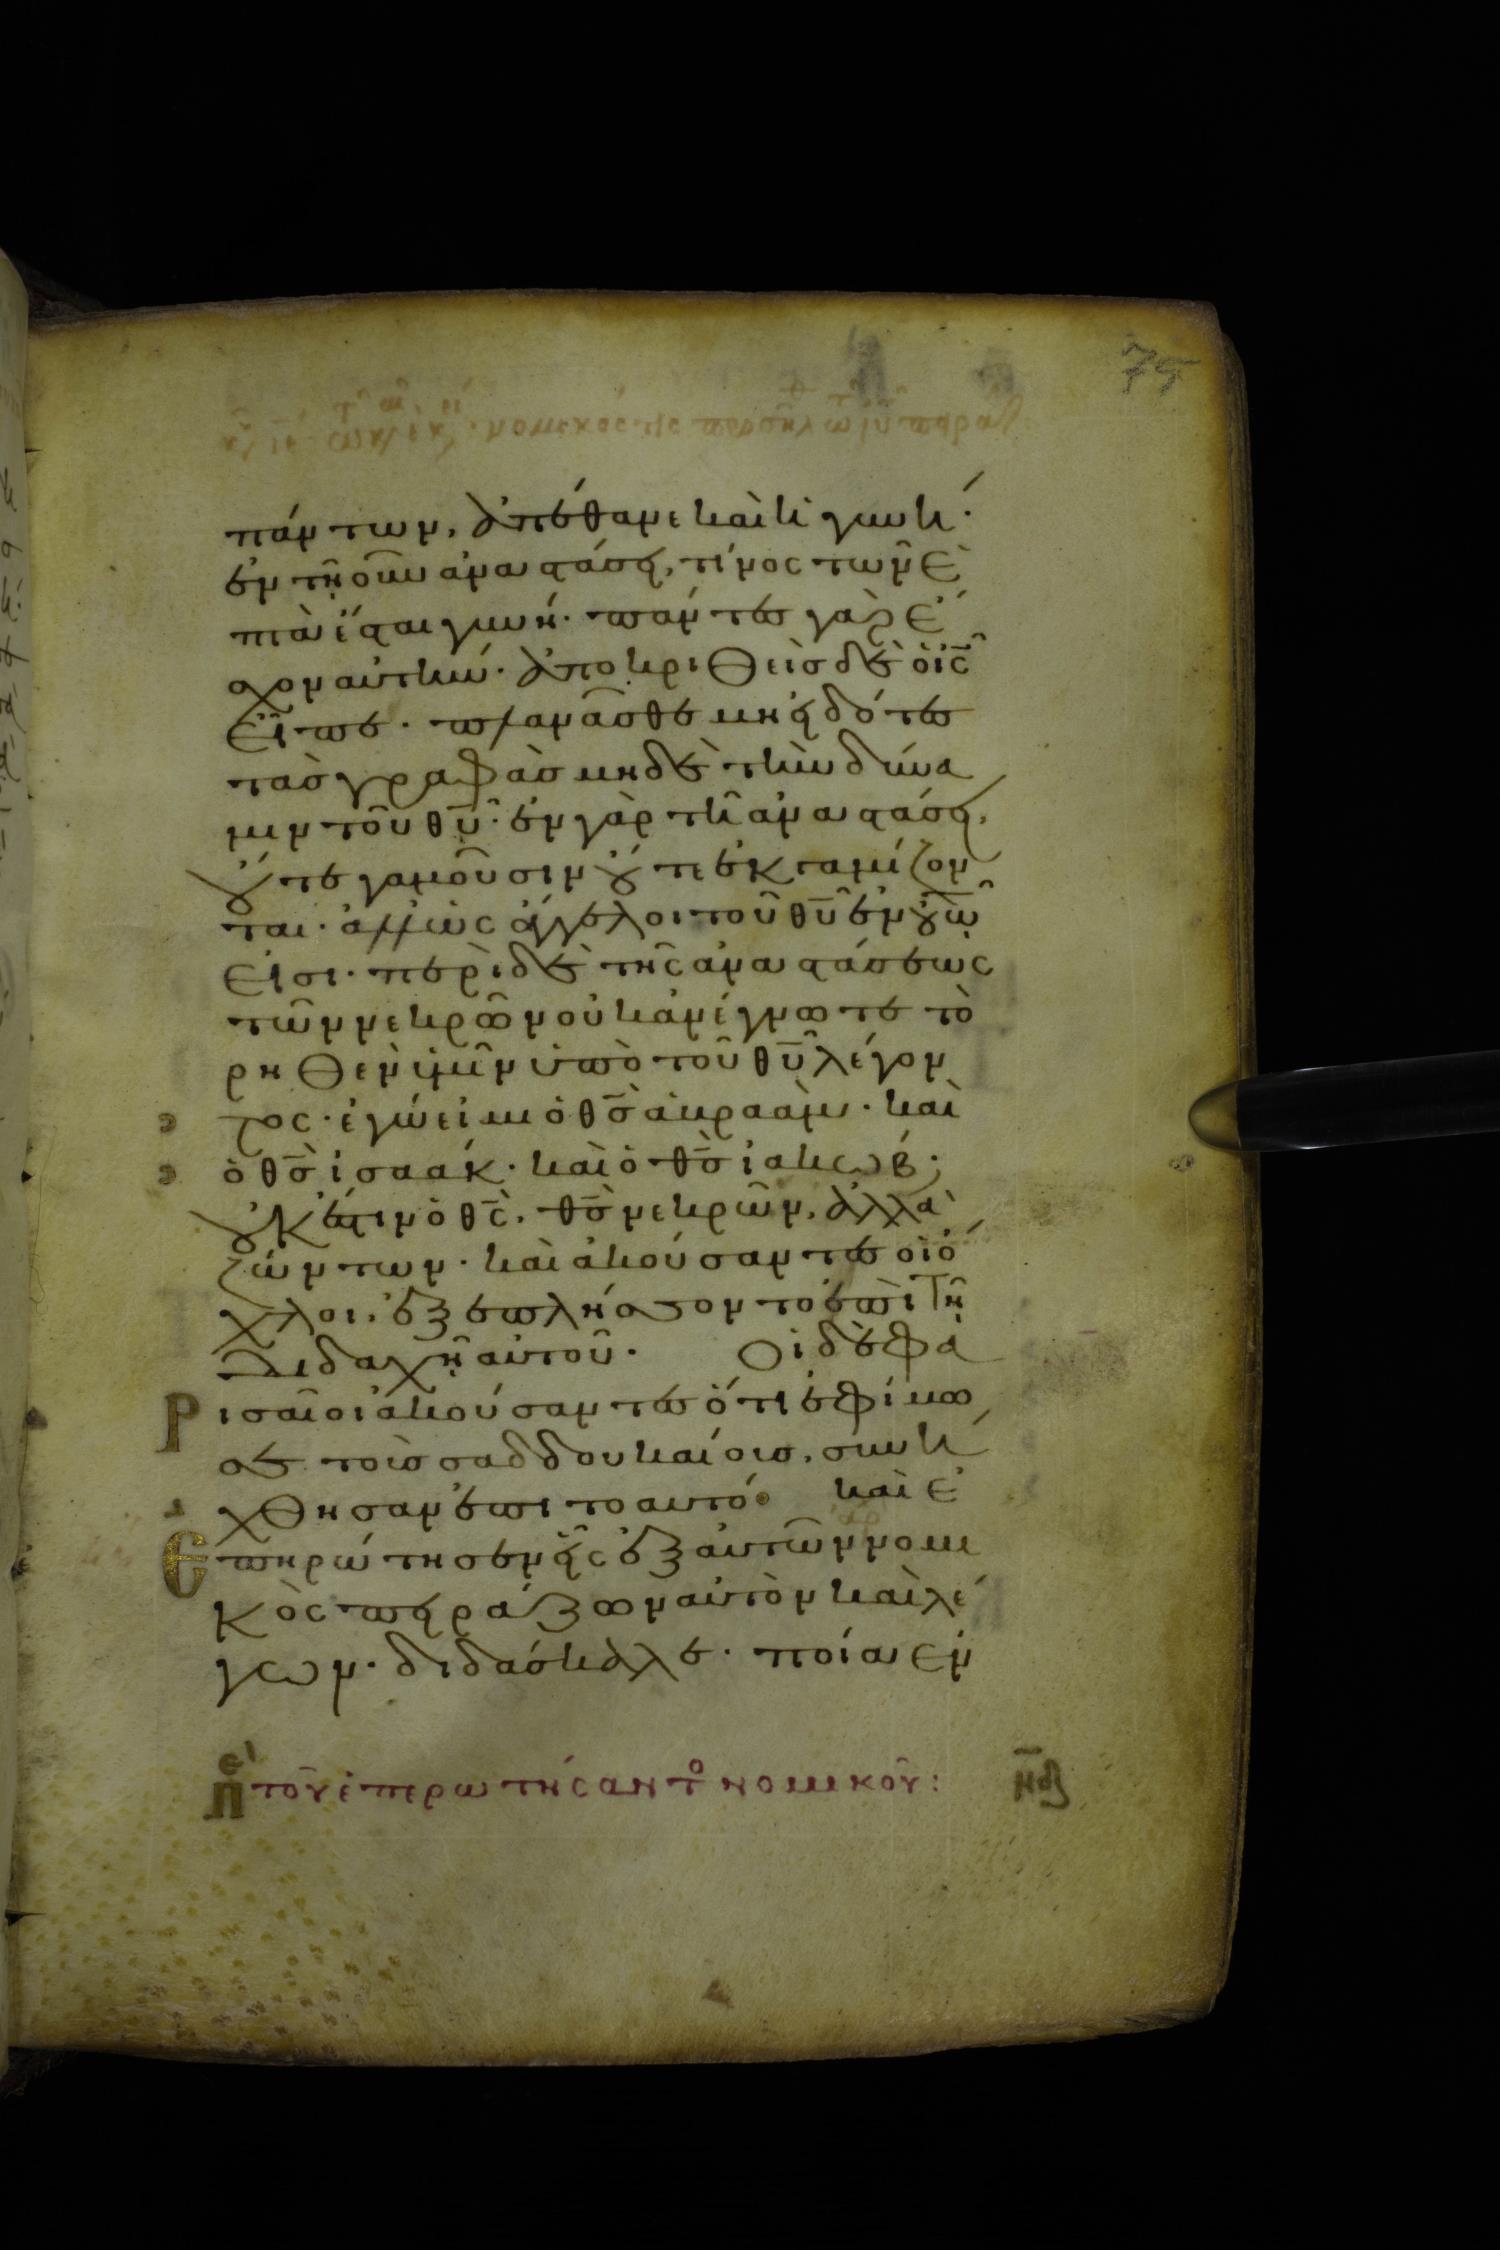 75
νομικός τις προσῆλθ
πάντων, ἀπέθανε καὶ ἡ γυνή·
ἐν τῇ οὖν ἀναστάσει, τίνος τῶν ἑ
πτὰ ἔσται γυνή· πάντες γὰρ ἔ
σχον αὐτήν· ἀποκριθεὶς δὲ ὁ ις̅
εἶπε· πλανᾶσθε μὴ εἰδότες
τὰς γραφὰς μηδὲ τὴν δύνα
μιν τοῦ θυ̅· ἐν γὰρ τῇ ἀναστάσει,
οὔτε γαμοῦσιν οὔτε ἐκγαμίζον
ται· ἀλλ' ὡς ἄγγελοι τοῦ θυ̅ ἐν οὐνω̅
εἰσι· περὶ δὲ τῆς ἀναστάσεως
τῶν νεκρῶν οὐκ ἀνέγνωτε τὸ
ρηθὲν ὑμῖν ὑπὸ τοῦ θυ̅ λέγον
τος· ἐγώ εἰμι ὁ θς̅ ἀβραάμ· καὶ
ὁ θς̅ ἰσαάκ· καὶ ὁ θς̅ ἰακώβ·
οὐκ ἔστιν ὁ θς̅, θς̅ νεκρῶν, ἀλλὰ
ζώντων· καὶ ἀκούσαντες οἱ ὄ
χλοι, ἐξεπλήσσοντο ἐπὶ τῇ
διδαχῇ αὐτοῦ· Οἱ δὲ φα
ρισαῖοι ἀκούσαντες ὅτι ἐφίμω
σε τοὺς σαδδουκαίους, συνή
χθησαν ἐπι το αυτό· καὶ ἐ
πηρώτησεν εἷς ἐξ αὐτῶν νομι
κὸς πειράζων αὐτὸν καὶ λέ
γων· διδάσκαλε· ποία ἐν
πε τοῦ ἐπερωτήσαντο νομικοῦ: